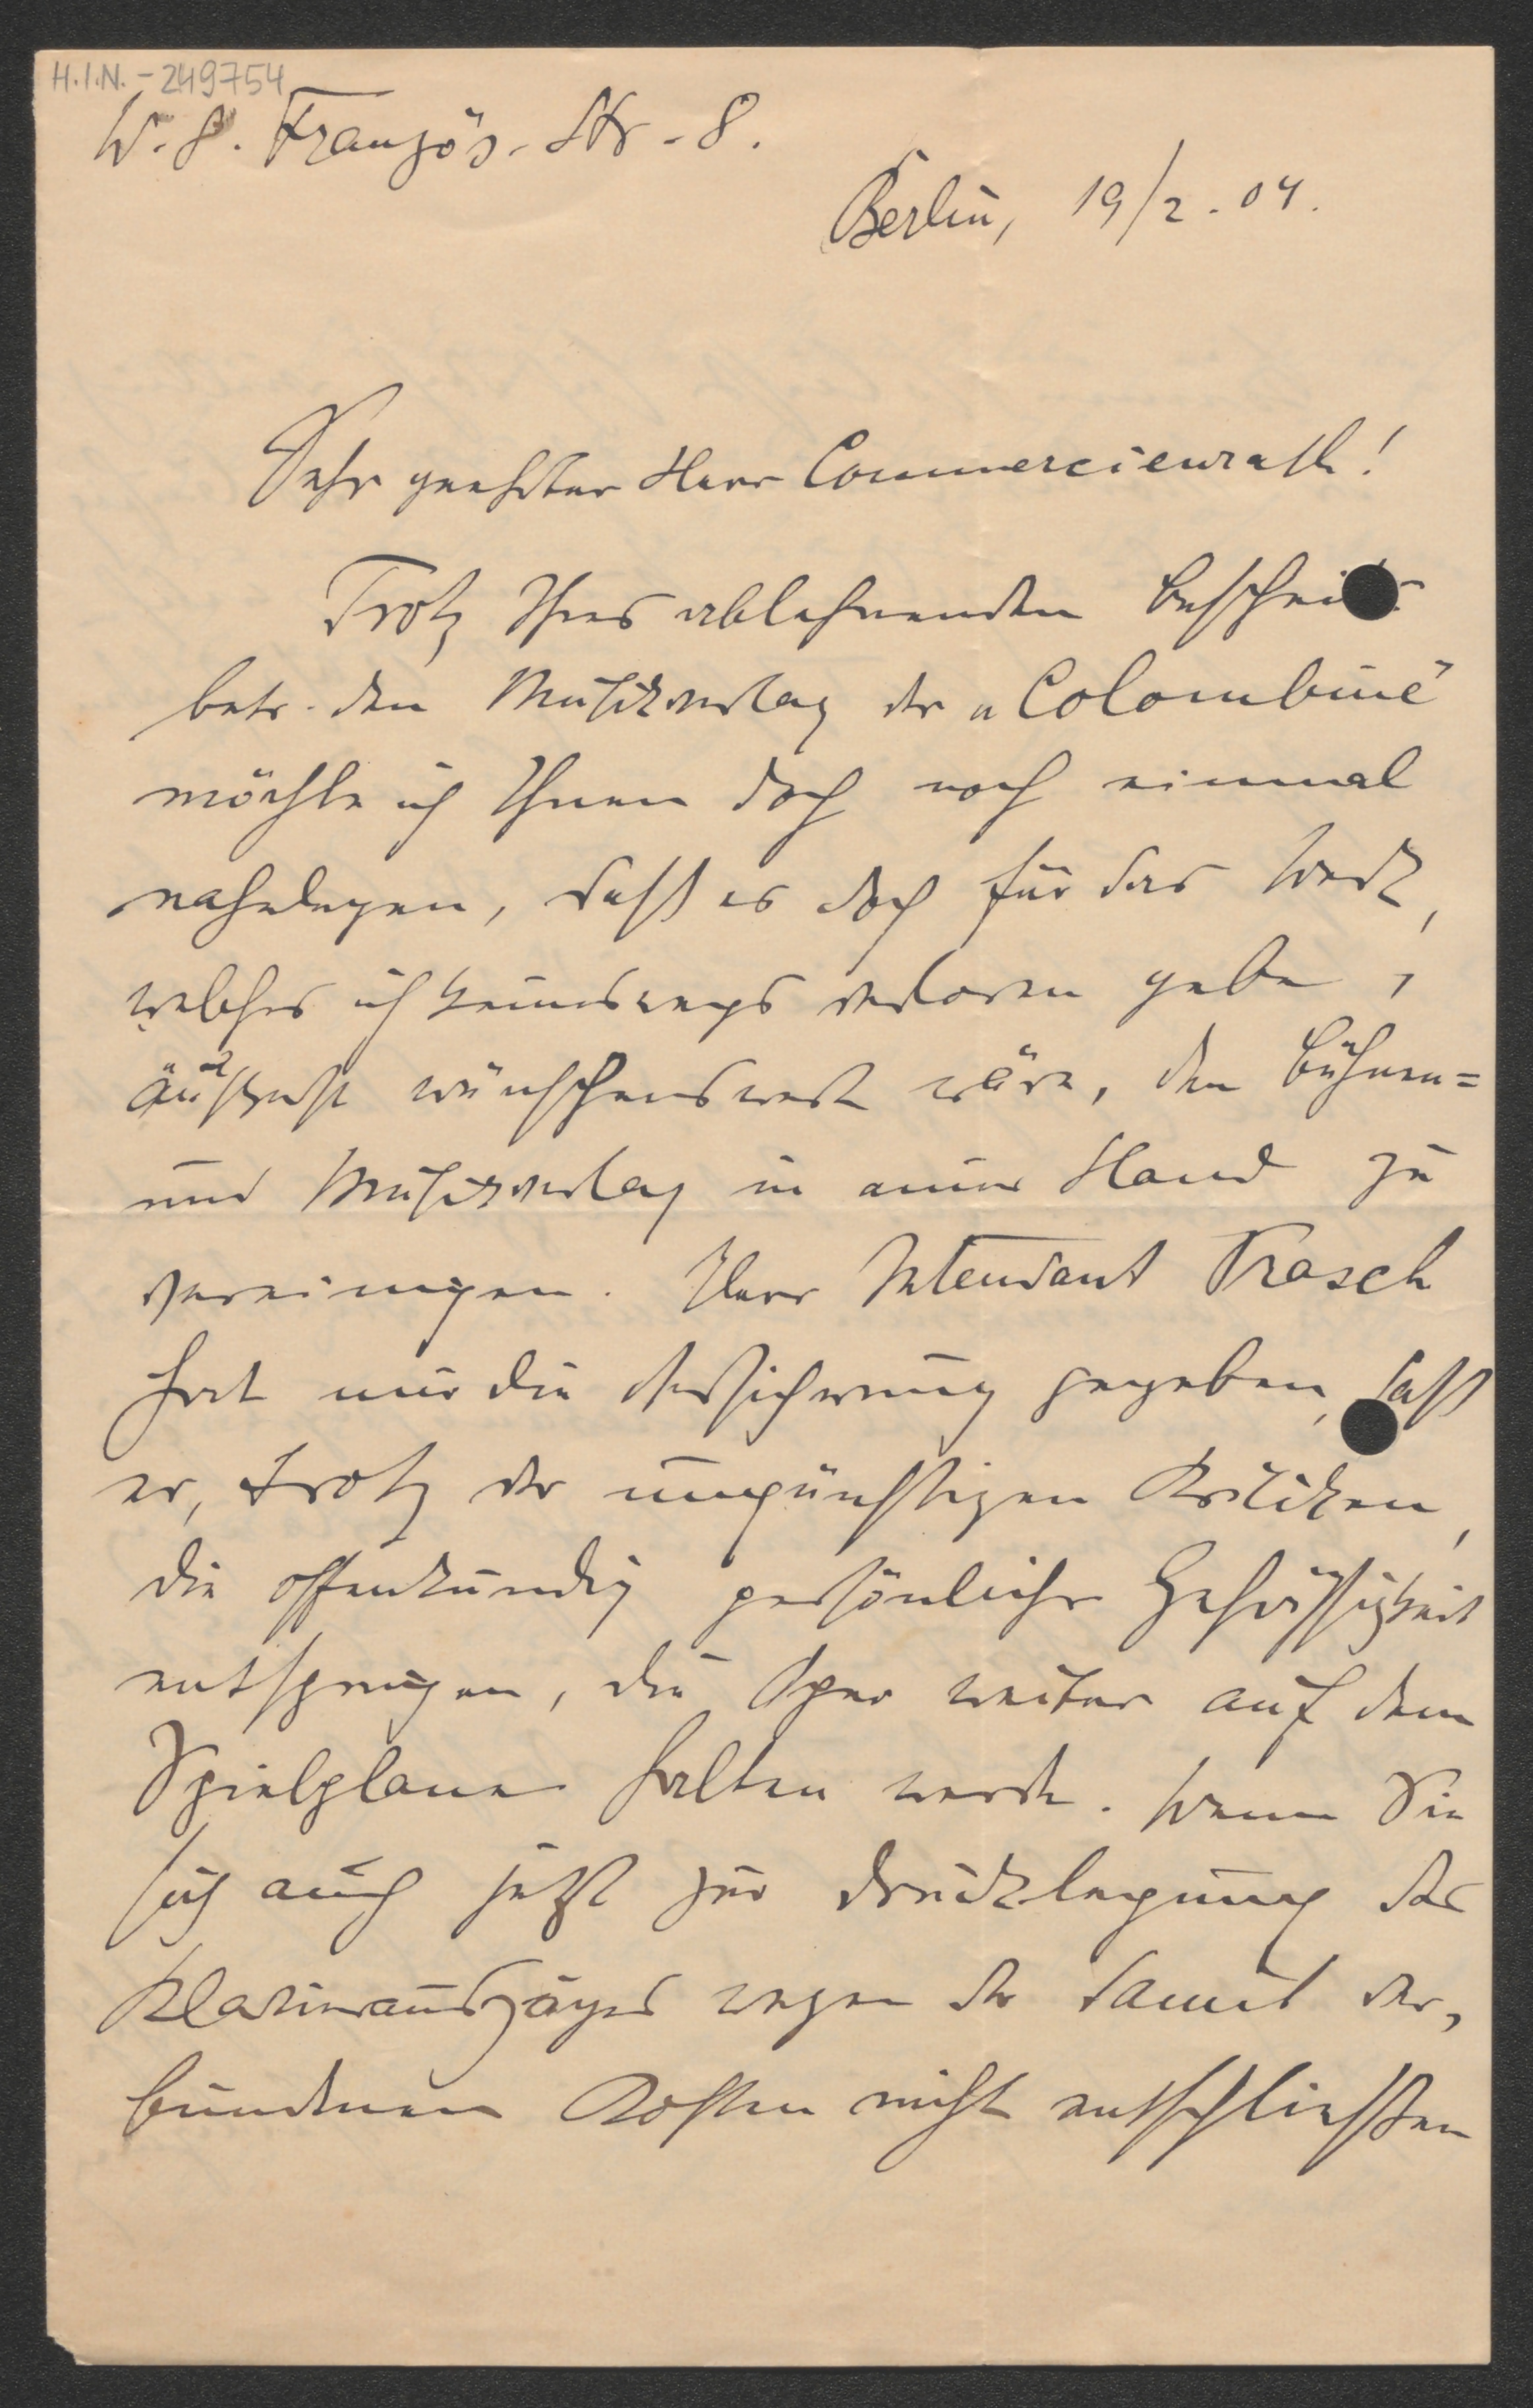 H.I.N.-249754
W. 8. Französ. Str. 8.
Berlin, 19/2. 04.
Sehr geehrter Herr Commercienrath!
Trotz Ihres ablehnenden Bescheids
betr. den Musikverlag der „Colombine"
möchte ich Ihnen doch noch einmal
nahelegen, daß es doch für das Werk,
welches ich keineswegs verloren gebe,
äußerst wünschenswert wäre, den Bühnen=
und Musikverlag in einer Hand zu
vereinigen. Herr Intendant Prasch
hat mir die Versicherung gegeben, daß
er, trotz der ungünstigen Kritiken,
die offenkundig persönlicher Gehässigkeit
entsprangen, die Oper weiter auf dem
Spielplane halten werde. Wenn Sie
sich auch jetzt zur Drucklegung des
Klavierauszuges wegen der damit ver„
bundenen Kosten nicht entschließen